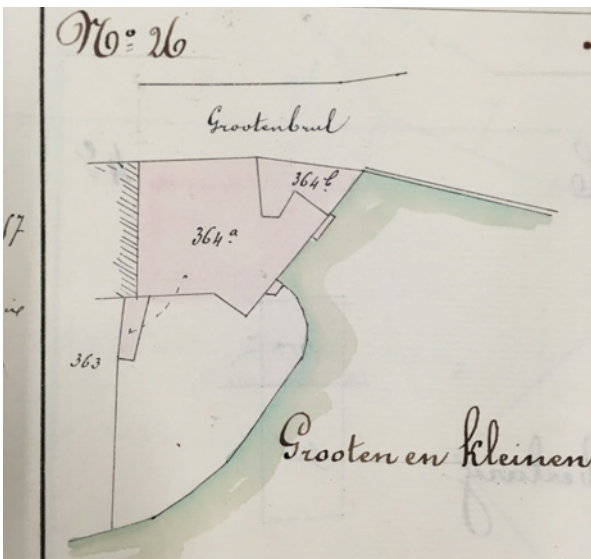 Nº 26
Grootenbrul
364ᵇ
364ᵃ
363
Grooten en kleinen